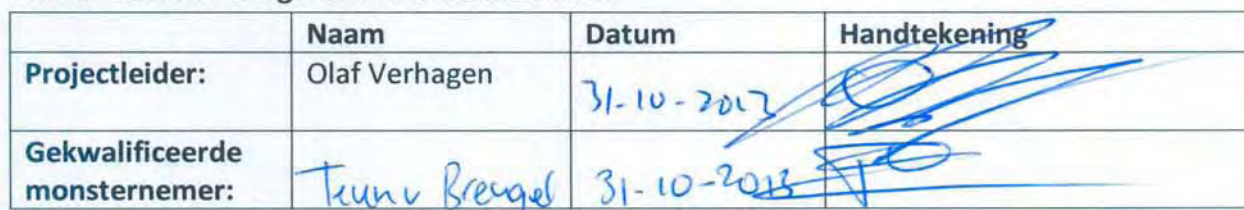 Naam Datum Handtekening
Projectleider: Olaf Verhagen 31-10-2013
Gekwalificeerde
monsternemer: Teun v Breugel 31-10-2013